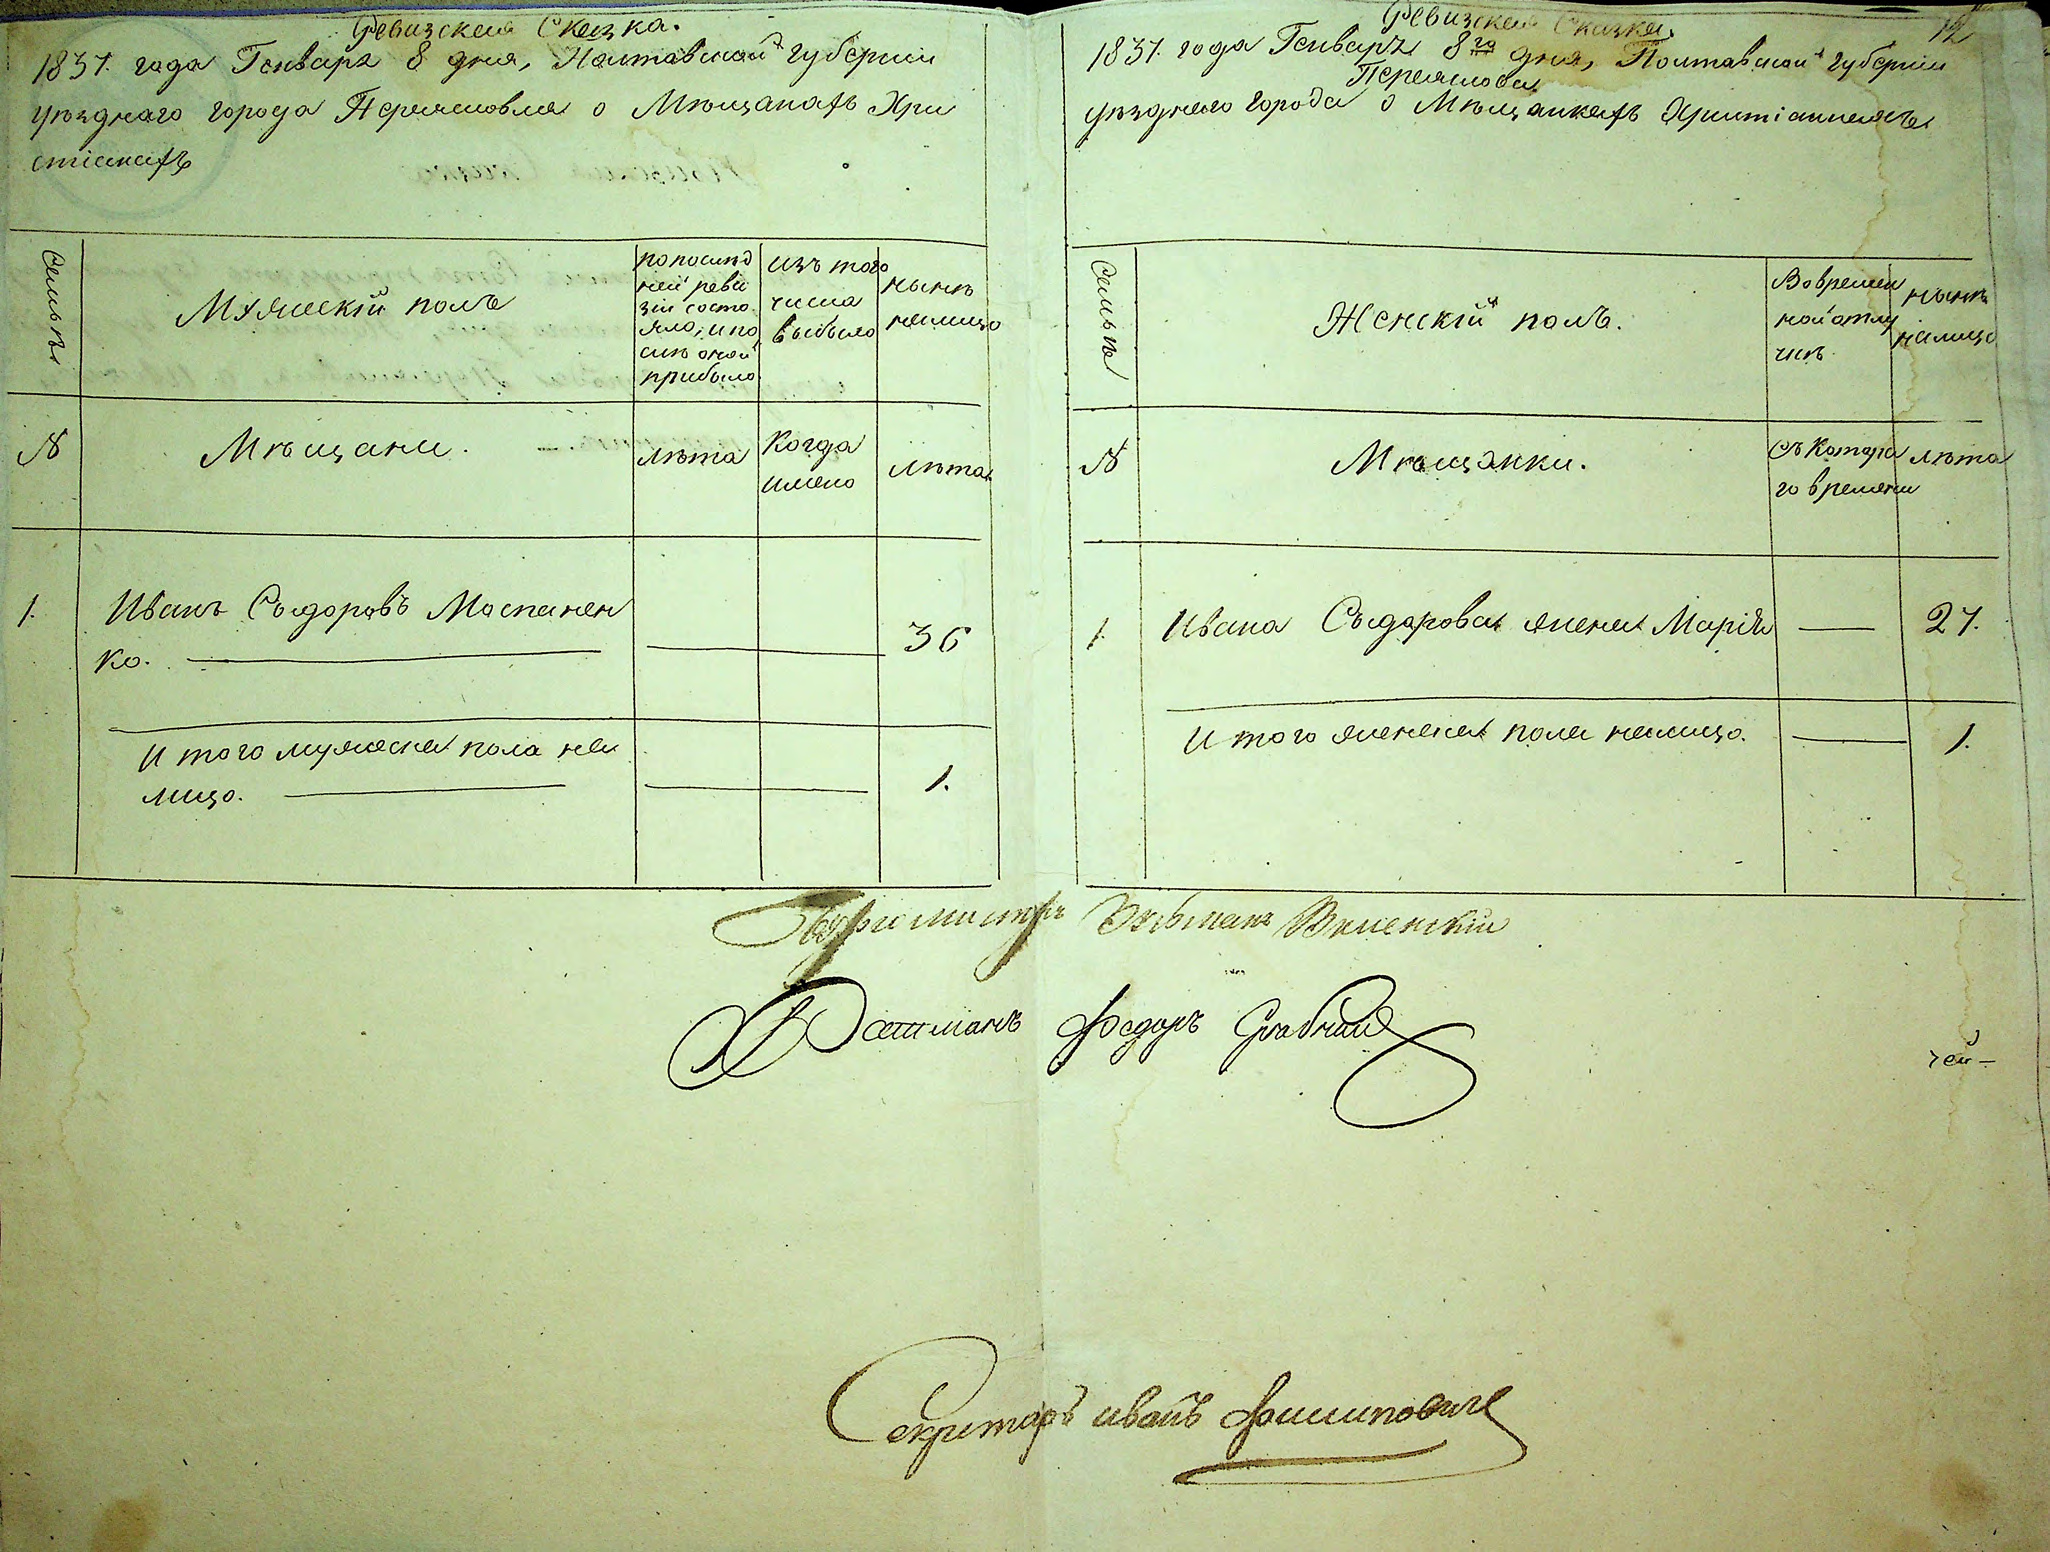 Ревизская Сказка.
1837. года Генваря 8 дня, Полтавской губернии
уѣзднаго города Переяслова о Мѣщанахъ Хри
стіанахъ
Семьи
Мужескій полъ
по послѣд
ней реви
зіи состо
яло, и по
слѣ оной
прибыло
изъ того
числа
выбыло
нынѣ
налицо
№
Мѣщани.
лѣта
Когда
имено
лѣта
1.
Иванъ Сыдоровъ Моспанен
ко.
36
И того мужеска пола на
лицо.
1.
Ревизская Сказка.
12
1837. года Генваря 8го дня, Полтавской губернии
Переяслова
уѣзднаго города о Мѣщанкахъ Христіанкахъ
Семьи
Женскій полъ.
Во времен
ной отлу
чкѣ
нынѣ
налицо
№
Мѣщанки.
Съ Котора
го времени
лѣта
1
Ивана Сыдорова жена Марія
27.
И того женска пола налицо.
1.
Бургомистръ
Ратманъ Федоръ
чей
Секретарь иванъ